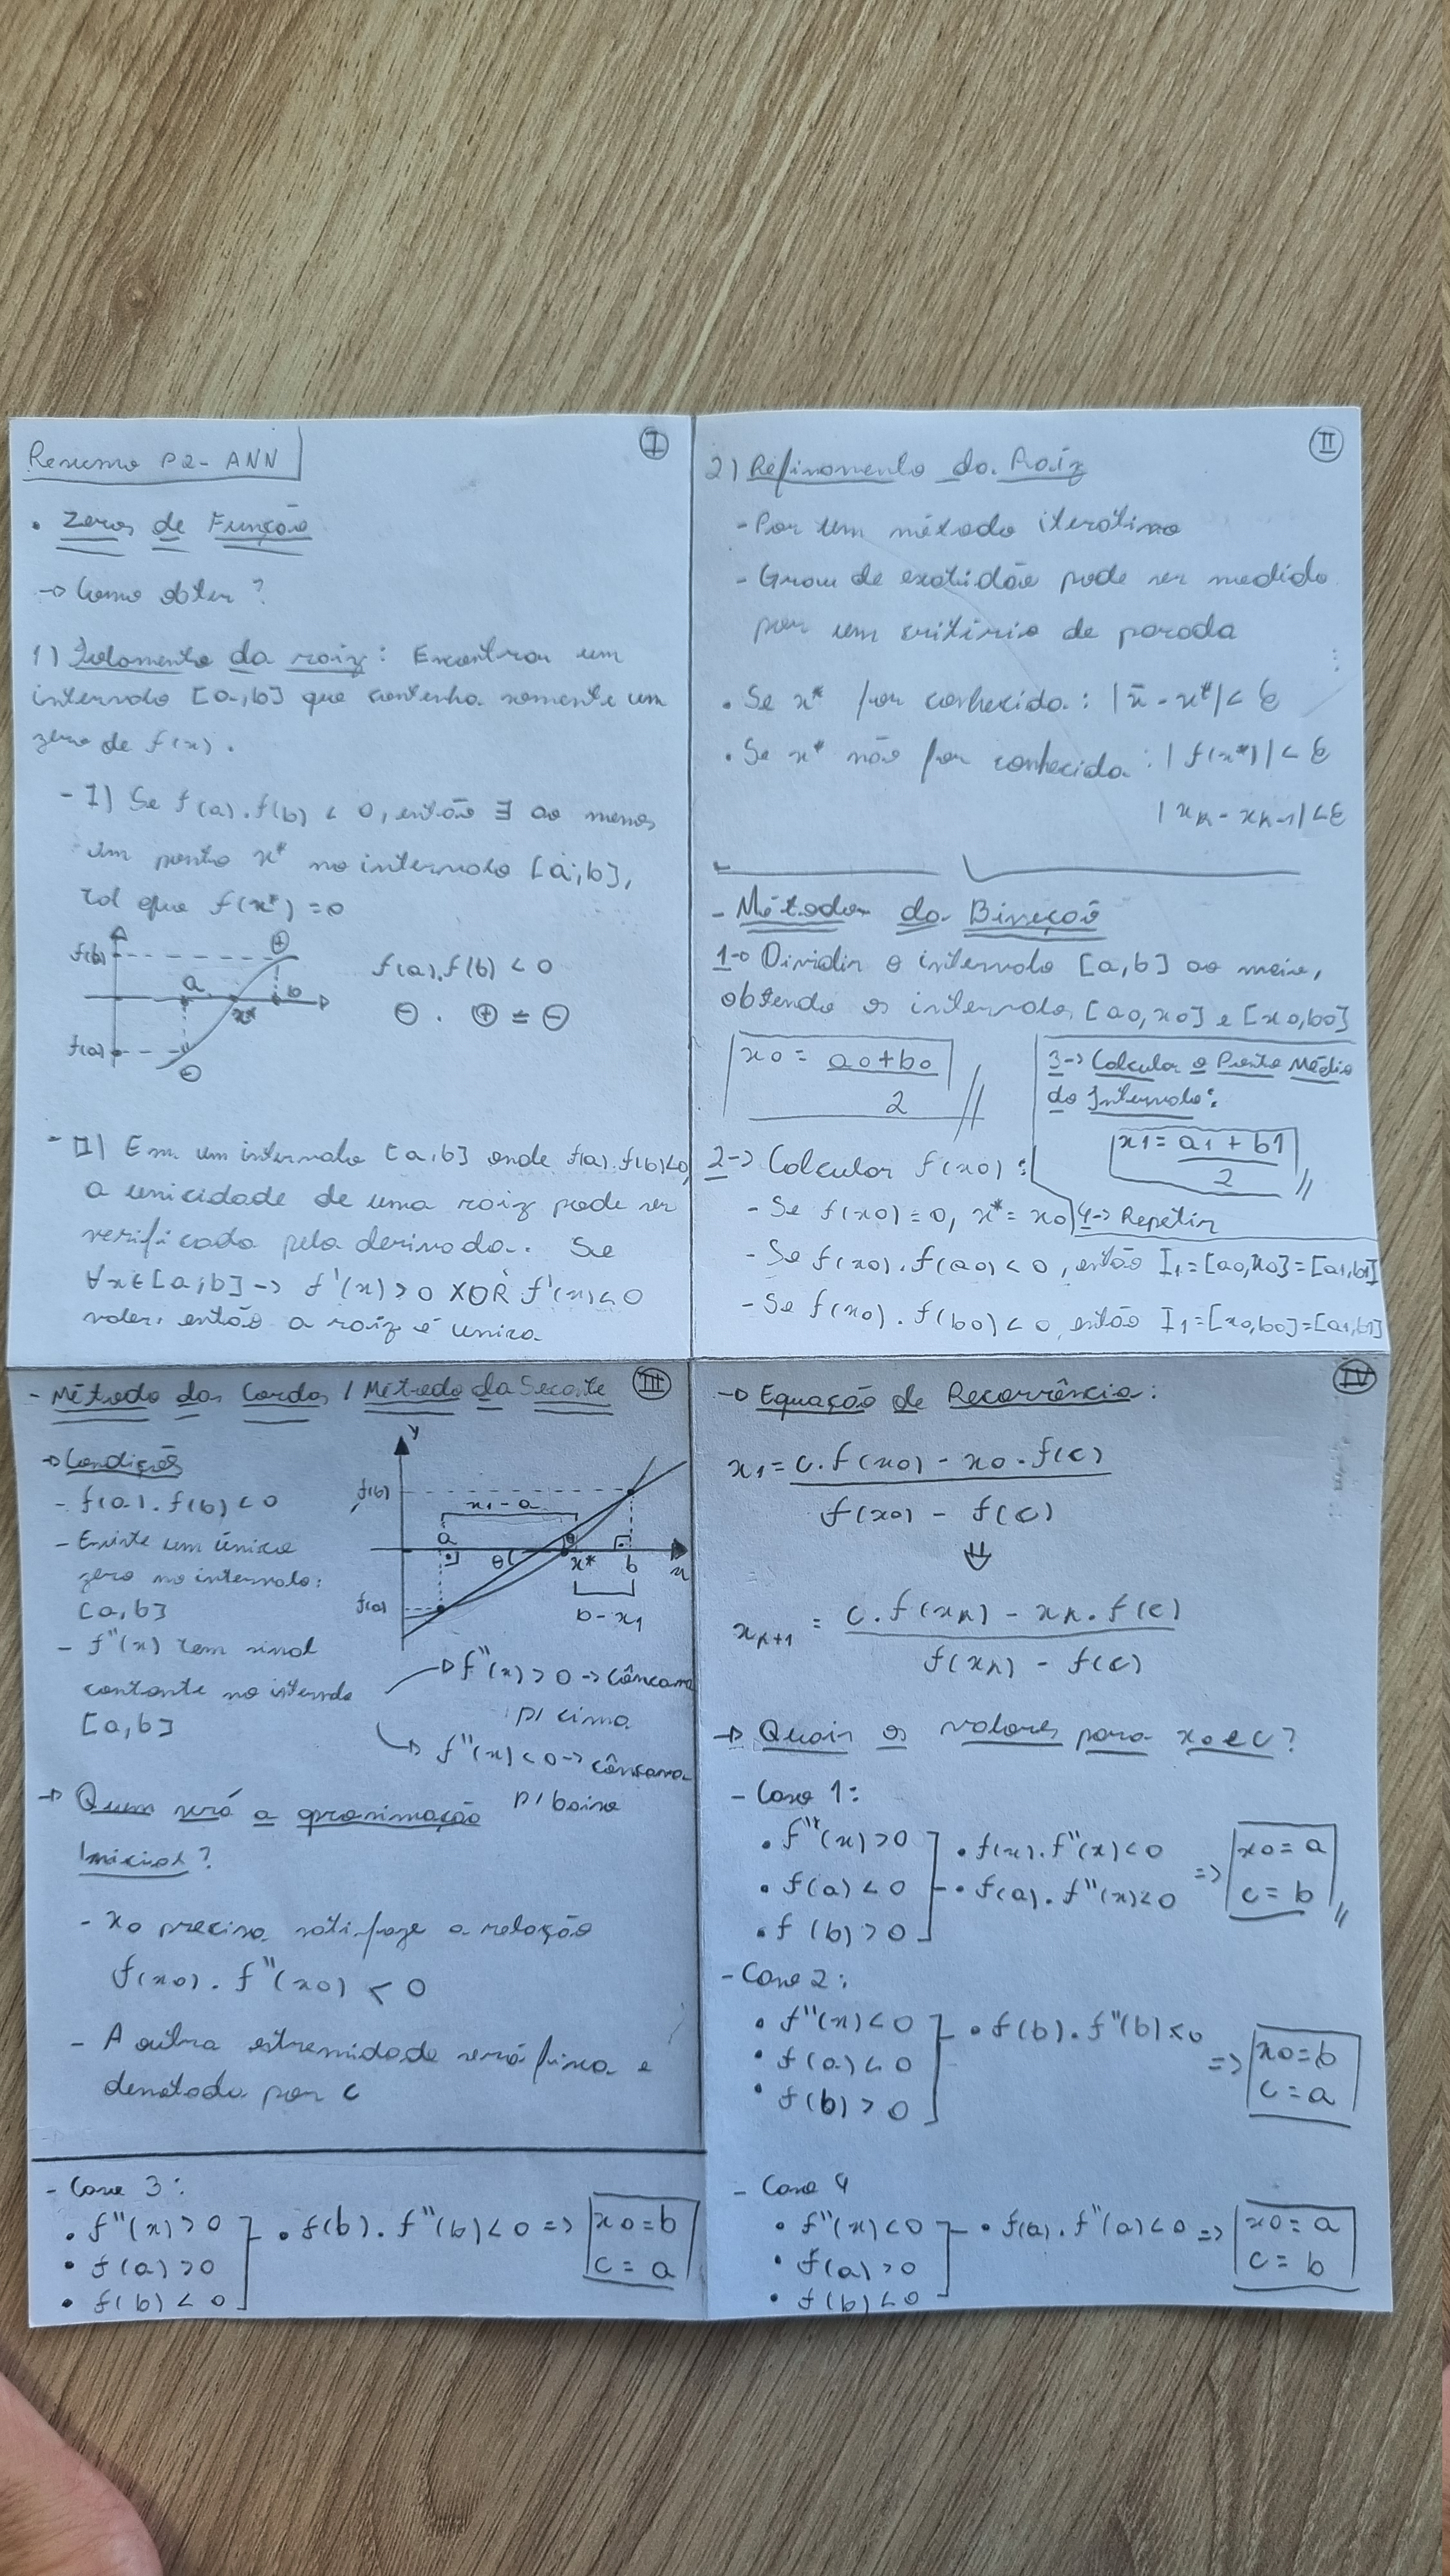 Resumo P2 - ANN
I
• Zeros de Função
→ Como obter?
1) Isolamento da raiz: Encontrar um
intervalo [a,b] que contenha somente um
zero de f(x).
- I) Se f(a).f(b) < 0, então ∃ ao menos
um ponto x* no intervalo [a,b],
tal que f(x*) = 0
f(b)
+
a
b
x*
f(a)
-
f(a).f(b) < 0
⊖ . ⊕ = ⊖
- II) Em um intervalo [a,b] onde f(a).f(b)<0,
a unicidade de uma raiz pode ser
verificada pela derivada. Se
∀x∈[a,b] → f'(x) > 0 XOR f'(x) < 0
valer, então a raiz é única.
II
2) Refinamento da Raíz
- Por um método iterativo
- Grau de exatidão pode ser medido
por um critério de parada
• Se x* for conhecido: |x̄ - x*| < ε
• Se x* não for conhecido: |f(x*)| < ε
|xk - xk-1| < ε
- Método da Bisseção
1→ Dividir o intervalo [a,b] ao meio,
obtendo os intervalos [a0,x0] e [x0,b0]
x0 = a0 + b0 / 2
2→ Calcular f(x0):
- Se f(x0) = 0, x* = x0
- Se f(x0).f(a0) < 0, então I1 = [a0,x0] = [a1,b1]
- Se f(x0).f(b0) < 0, então I1 = [x0,b0] = [a1,b1]
3→ Calcular o Ponto Médio
do Intervalo:
x1 = a1 + b1 / 2
4→ Repetir
III
- Método das Cordas / Método da Secante
→ Condições
- f(a).f(b) < 0
- Existe um único
zero no intervalo:
[a,b]
- f''(x) tem sinal
contante no intervalo
[a,b]
y
f(b)
x1 - a
a
θ
θ
x*
b
x
f(a)
b - x1
→ f''(x) > 0 → Côncava
p/ cima
→ f''(x) < 0 → côncava
p/ baixo
→ Quem será a aproximação
Inicial?
- x0 precisa satisfaze a relação
f(x0).f''(x0) < 0
- A outra extremidade será fixa e
denotada por c
IV
→ Equação de Recorrência:
x1 = c.f(x0) - x0.f(c) / f(x0) - f(c)
⇓
xk+1 = c.f(xk) - xk.f(c) / f(xk) - f(c)
→ Quais os valores para x0 e c?
- Caso 1:
• f''(x) > 0
• f(a) < 0
• f(b) > 0
• f(x).f''(x) < 0
• f(a).f''(x) < 0
=> x0 = a
c = b
- Caso 2:
• f''(x) < 0
• f(a) < 0
• f(b) > 0
• f(b).f''(b) < 0
=> x0 = b
c = a
- Caso 3:
• f''(x) > 0
• f(a) > 0
• f(b) < 0
• f(b).f''(b) < 0 => x0 = b
c = a
- Caso 4
• f''(x) < 0
• f(a) > 0
• f(b) < 0
• f(a).f''(a) < 0 => x0 = a
c = b